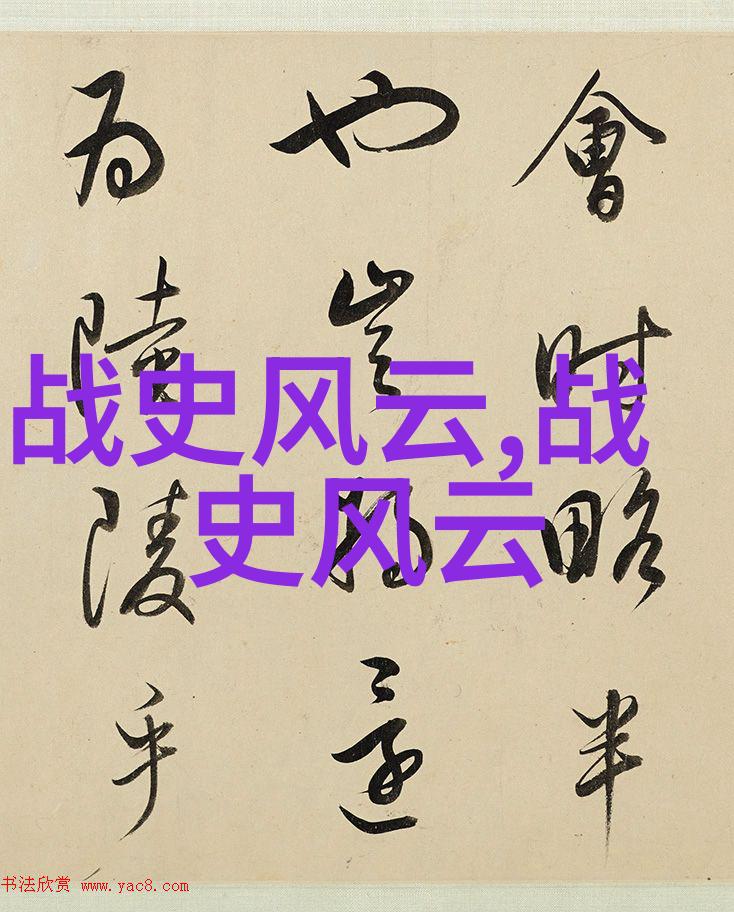 會時略半
也豈
為陵乎
战史风云,战
史风云
书法欣赏 www.yac8.com